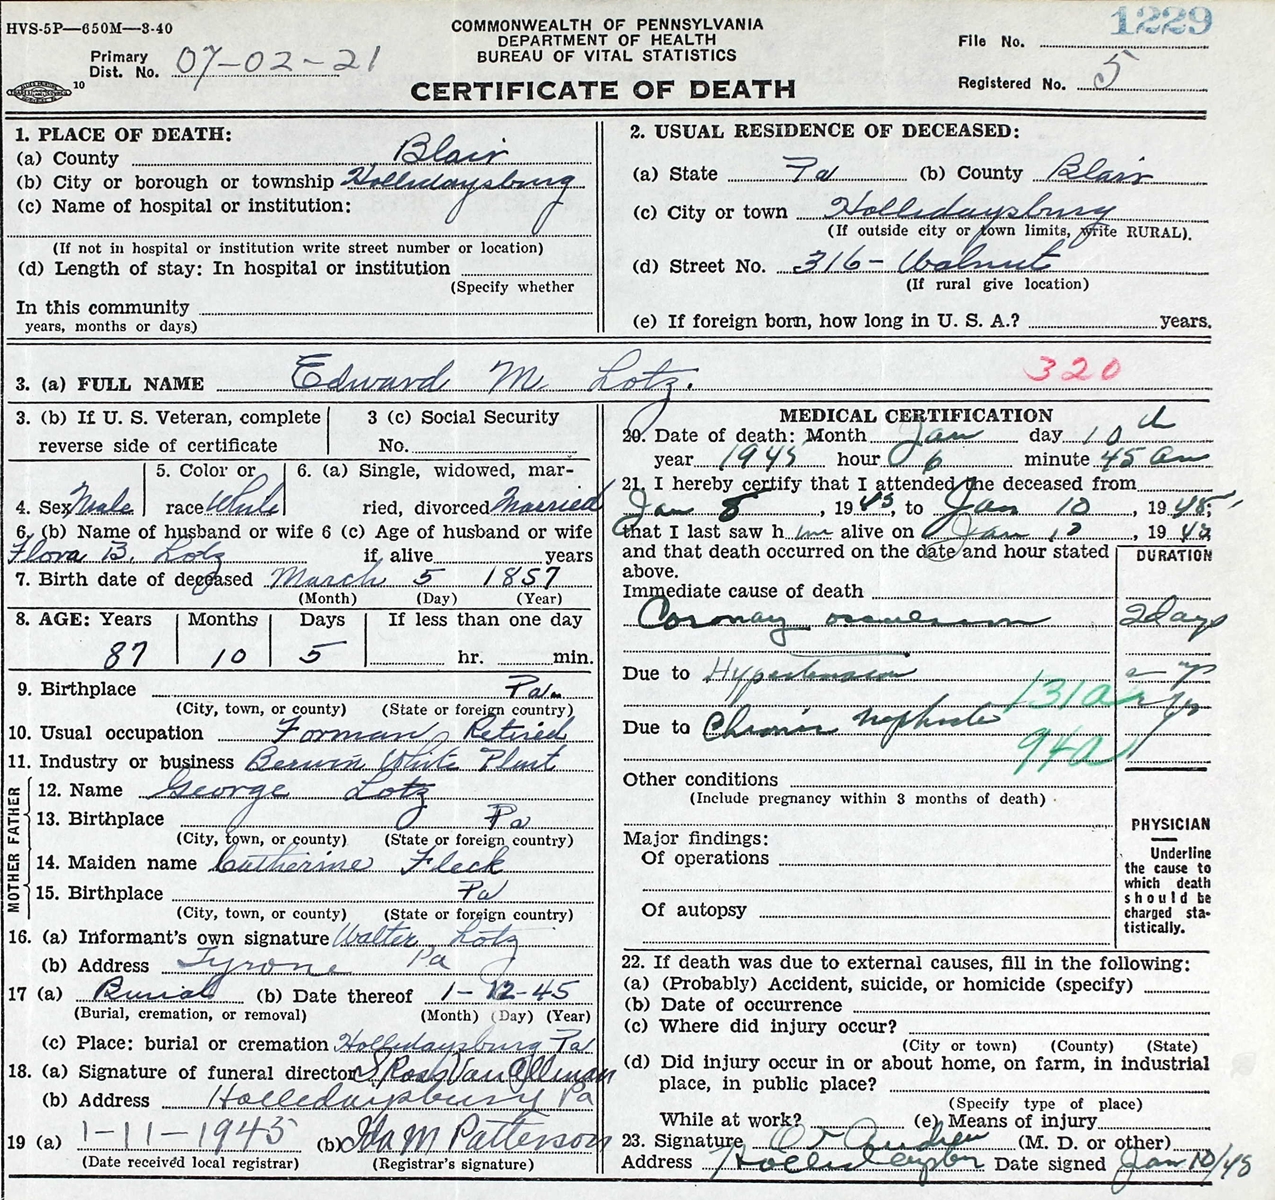 HVS-5P—650M—3-40
COMMONWEALTH OF PENNSYLVANIA
DEPARTMENT OF HEALTH
BUREAU OF VITAL STATISTICS
CERTIFICATE OF DEATH
Primary Dist. No. 07-02-21
10
File No. 1229
Registered No. 5
1. PLACE OF DEATH:
(a) County Blair
(b) City or borough or township Hollidaysburg
(c) Name of hospital or institution:
(If not in hospital or institution write street number or location)
(d) Length of stay: In hospital or institution
(Specify whether
In this community
years, months or days)
2. USUAL RESIDENCE OF DECEASED:
(a) State Pa (b) County Blair
(c) City or town Hollidaysburg
(If outside city or town limits, write RURAL).
(d) Street No. 316 - Walnut
(If rural give location)
(e) If foreign born, how long in U. S. A.? years.
3. (a) FULL NAME Edward M Lotz. 320
3. (b) If U. S. Veteran, complete
reverse side of certificate
3 (c) Social Security
No.
4. Sex Male
5. Color or
race White
6. (a) Single, widowed, mar-
ried, divorced Married
6. (b) Name of husband or wife 6 (c) Age of husband or wife
Flora B. Lotz if alive years
7. Birth date of deceased March 5 1857
(Month) (Day) (Year)
8. AGE: Years Months Days If less than one day
87 10 5 hr. min.
9. Birthplace Pa.
(City, town, or county) (State or foreign country)
10. Usual occupation Forman Retired
11. Industry or business Berwin White Plant
FATHER
12. Name George Lotz
13. Birthplace Pa
(City, town, or county) (State or foreign country)
MOTHER
14. Maiden name Catherine Fleck
15. Birthplace Pa
(City, town, or county) (State or foreign country)
16. (a) Informant's own signature Walter Lotz
(b) Address Tyrone Pa
17 (a) Burial (b) Date thereof 1-12-45
(Burial, cremation, or removal) (Month) (Day) (Year)
(c) Place: burial or cremation Hollidaysburg Pa
18. (a) Signature of funeral director S Ross Van Allman
(b) Address Hollidaysburg Pa
19 (a) 1-11-1945 (b) Ida M Patterson
(Date received local registrar) (Registrar's signature)
MEDICAL CERTIFICATION
20. Date of death: Month Jan day 10th
year 1945 hour 6 minute 45 am
21. I hereby certify that I attended the deceased from
Jan 8, 1945, to Jan 10, 1945;
that I last saw him alive on Jan 10, 1945
and that death occurred on the date and hour stated
above.
DURATION
Immediate cause of death
Coronary occlusion 2 days
Due to Hypertension
131a
Due to Chronic nephritis
94a
Other conditions
(Include pregnancy within 3 months of death)
Major findings:
Of operations
Of autopsy
PHYSICIAN
Underline
the cause to
which death
should be
charged sta-
tistically.
22. If death was due to external causes, fill in the following:
(a) (Probably) Accident, suicide, or homicide (specify)
(b) Date of occurrence
(c) Where did injury occur?
(City or town) (County) (State)
(d) Did injury occur in or about home, on farm, in industrial
place, in public place?
(Specify type of place)
While at work? (e) Means of injury
23. Signature (M. D. or other)
Address Hollidaysburg Date signed Jan 10/45